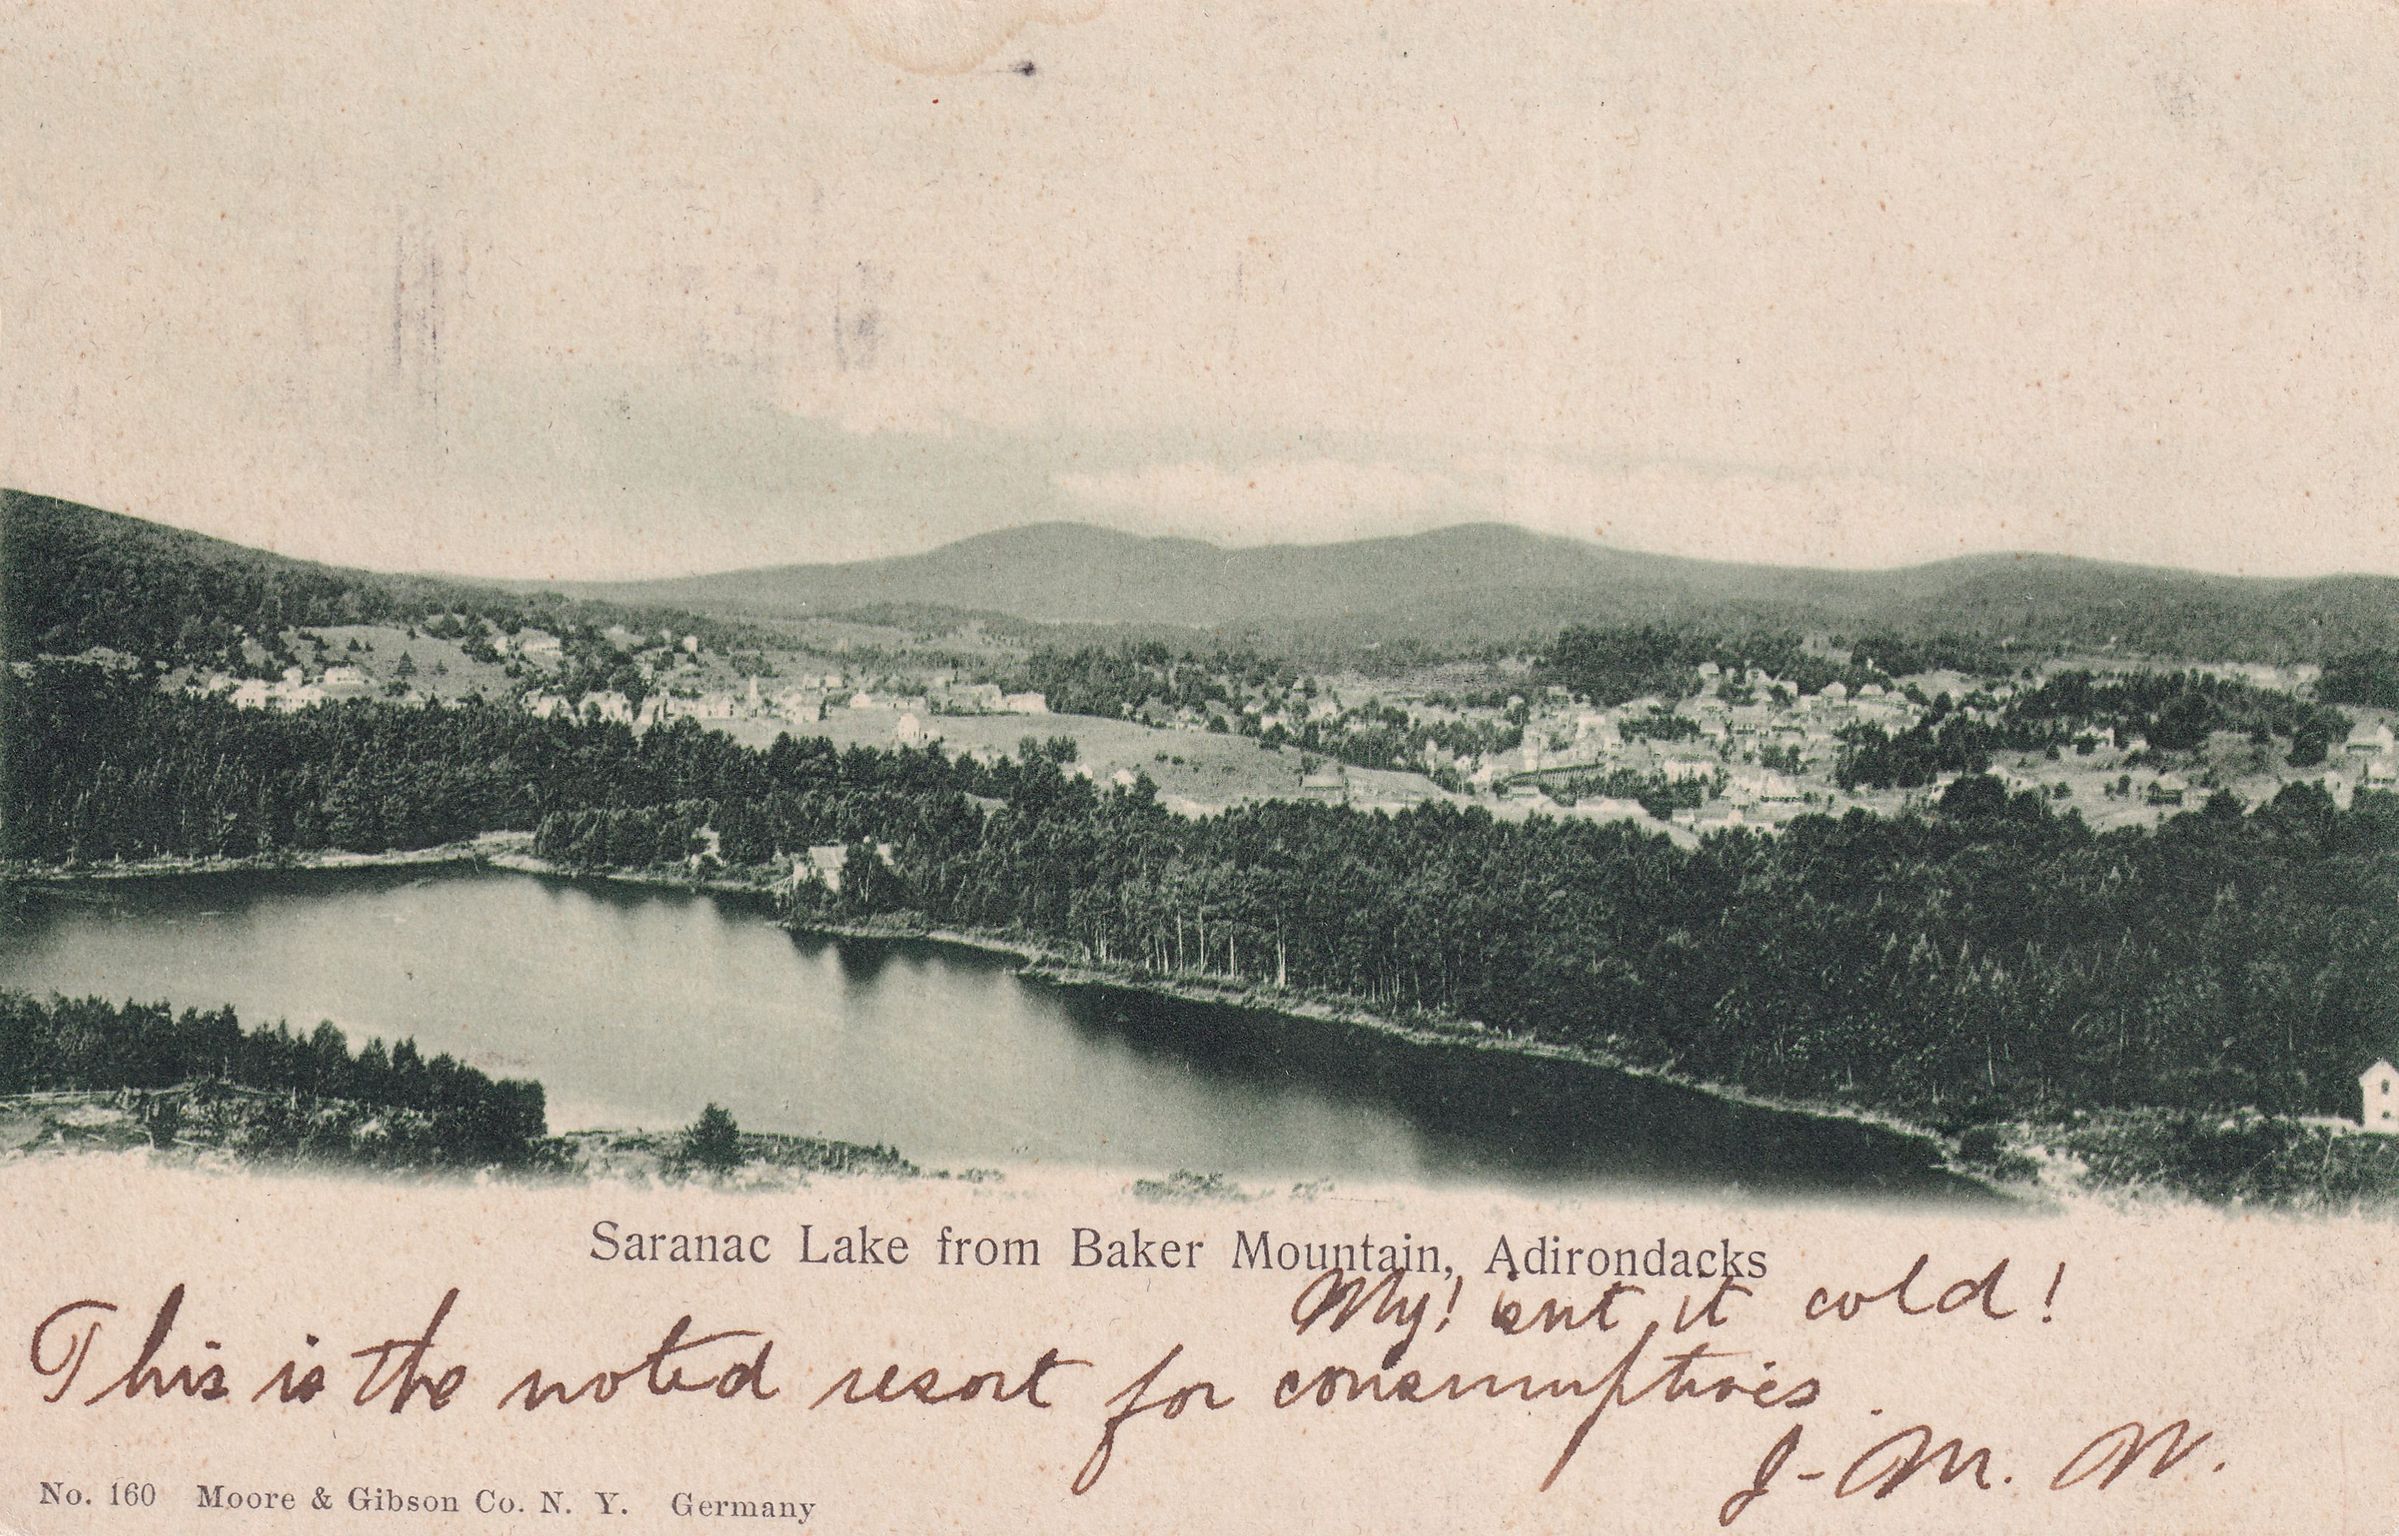 Saranac Lake from Baker Mountain, Adirondacks
My! isnt it cold!
This is the noted resort for consumptives.
J. M. W.
No. 160 Moore & Gibson Co. N. Y. Germany